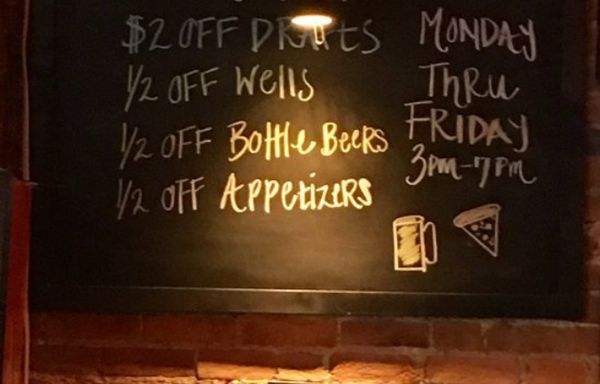 $2 OFF DRAFTS
1/2 OFF Wells
1/2 OFF Bottle Beers
1/2 OFF Appetizers
MONDAY
THRU
FRIDAY
3pm-7pm